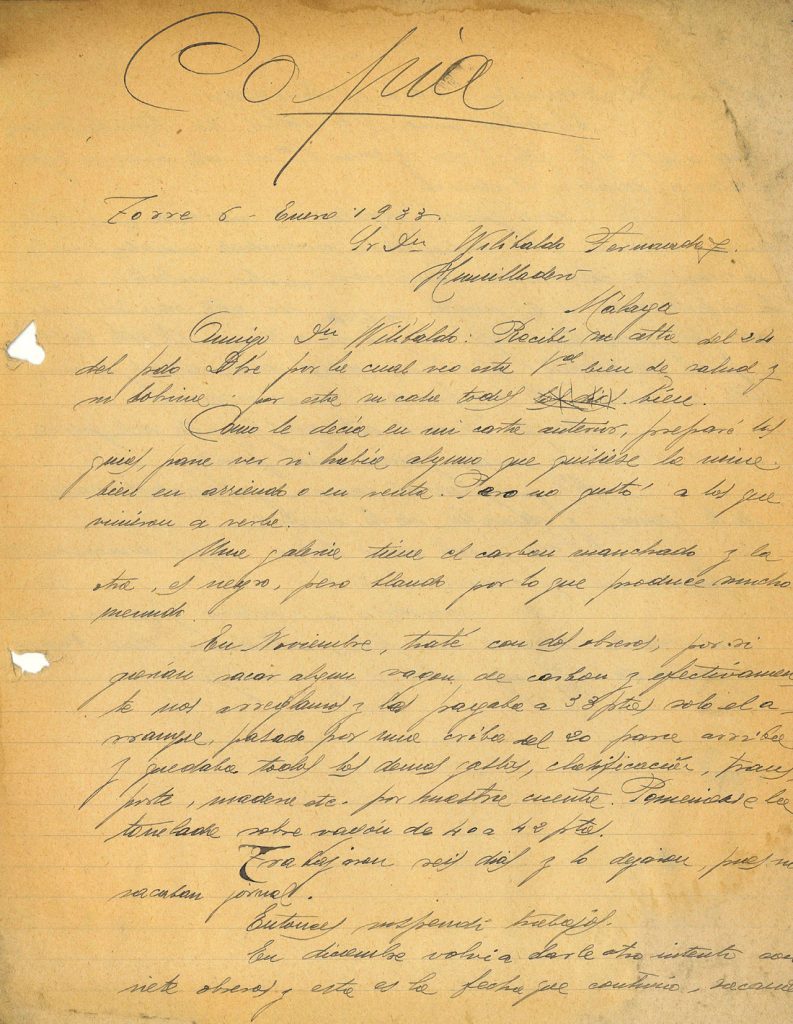 Copia
Torre 6 - Enero 1933.
Sr Dn Wilibaldo Fernandez.
Humilladero
Málaga
Amigo Dn Wilibaldo: Recibí su atta del 24
del pdo Dbre por la cual veo esta Vd bien de salud y
su sobrina. por esta su casa todos bien.
Como le decia en mi carta anterior, preparé los
guias, para ver si habia alguno que quisiese la mina
bien en arriendo o en venta. Pero no gustó a los que
vinieron a verla.
Una galeria tiene el carbon manchado y la
otra, es negro, pero blando por lo que produce mucho
menudo.
En Noviembre, traté con dos obreros, por si
querian sacar algun vagon de carbon y efectivamen
te nos arreglamos y les pagaba a 33 ptas solo el a-
rranque, pasado por una criba del 20 para arriba
y quedaba todos los demas gastos, clasificación, trans
porte, madera etc. por nuestra cuenta. la
tonelada sobre vagón de 40 a 42 ptas.
Trabajaron seis dias y lo dejaron, pues no
sacaban jornal.
Entonces suspendí trabajos.
En diciembre volvi a darle otro intento con
siete obreros y esta es la fecha que continúo, sacana